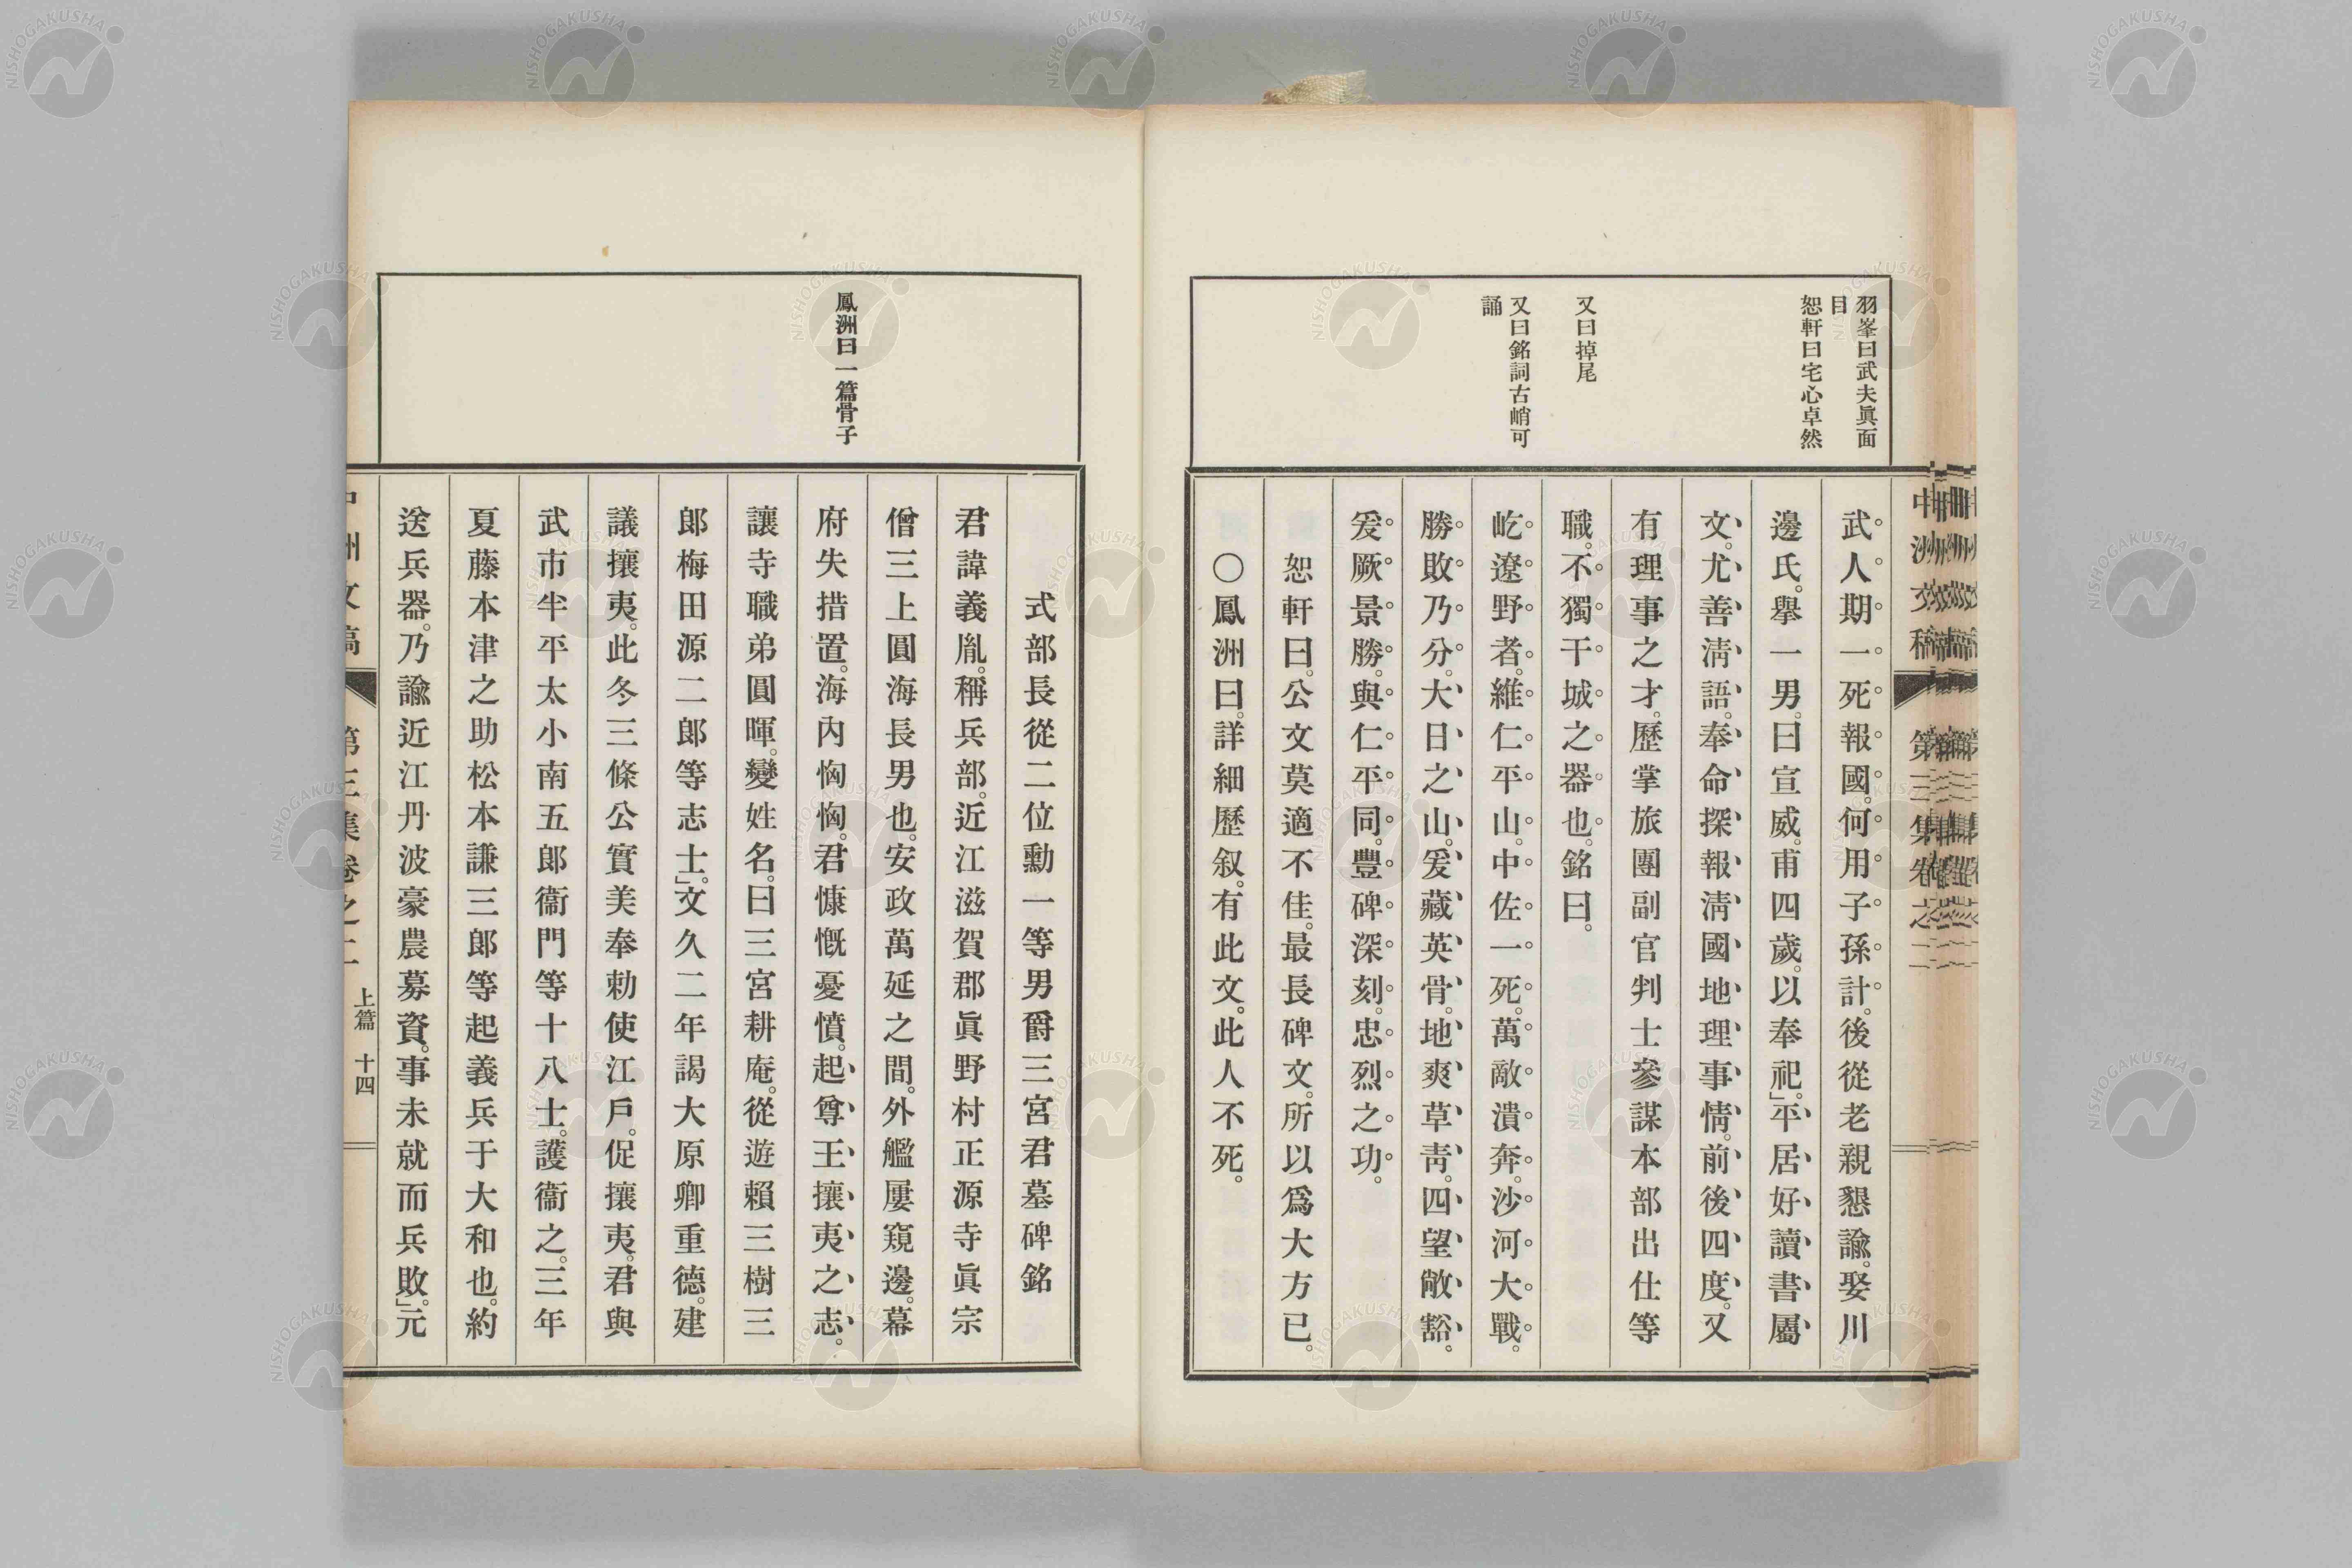 羽峯曰武夫眞面
目
恕軒曰宅心卓然
又曰掉尾
又曰銘詞古峭可
誦
武人期一死報國。何用子孫計。後從老親懇諭。娶川
邊氏。擧一男。曰宣威。甫四歲。以奉祀。」平居好讀書屬
文。尤善淸語。奉命探報淸國地理事情。前後四度。又
有理事之才。歷掌旅團副官判士參謀本部出仕等
職。不獨干城之器也。銘曰。
屹遼野者。維仁平山。中佐一死。萬敵潰奔。沙河大戰。
勝敗乃分。大日之山。爰藏英骨。地爽草靑。四望敞豁。
爰厥景勝。與仁平同。豐碑深刻。忠烈之功。
恕軒曰。公文莫適不佳。最長碑文。所以爲大方已。
○鳳洲曰。詳細歷叙。有此文。此人不死。
鳳洲曰一篇骨子
式部長從二位勳一等男爵三宮君墓碑銘
君諱義胤。稱兵部。近江滋賀郡眞野村正源寺眞宗
僧三上圓海長男也。安政萬延之間。外艦屢窺邊。幕
府失措置。海內恟恟。君慷慨憂憤。起尊王攘夷之志。
讓寺職弟圓暉。變姓名。曰三宮耕庵。從遊賴三樹三
郎梅田源二郎等志士。」文久二年謁大原卿重德。建
議攘夷。此冬三條公實美奉勅使江戶。促攘夷。君與
武市半平太小南五郎衞門等十八士。護衞之。三年
夏藤本津之助松本謙三郎等起義兵于大和也。約
送兵器。乃諭近江丹波豪農募資。事未就而兵敗。」元
中洲文稿
第三集卷之二
上篇
十四
NISHOGAKUSHA